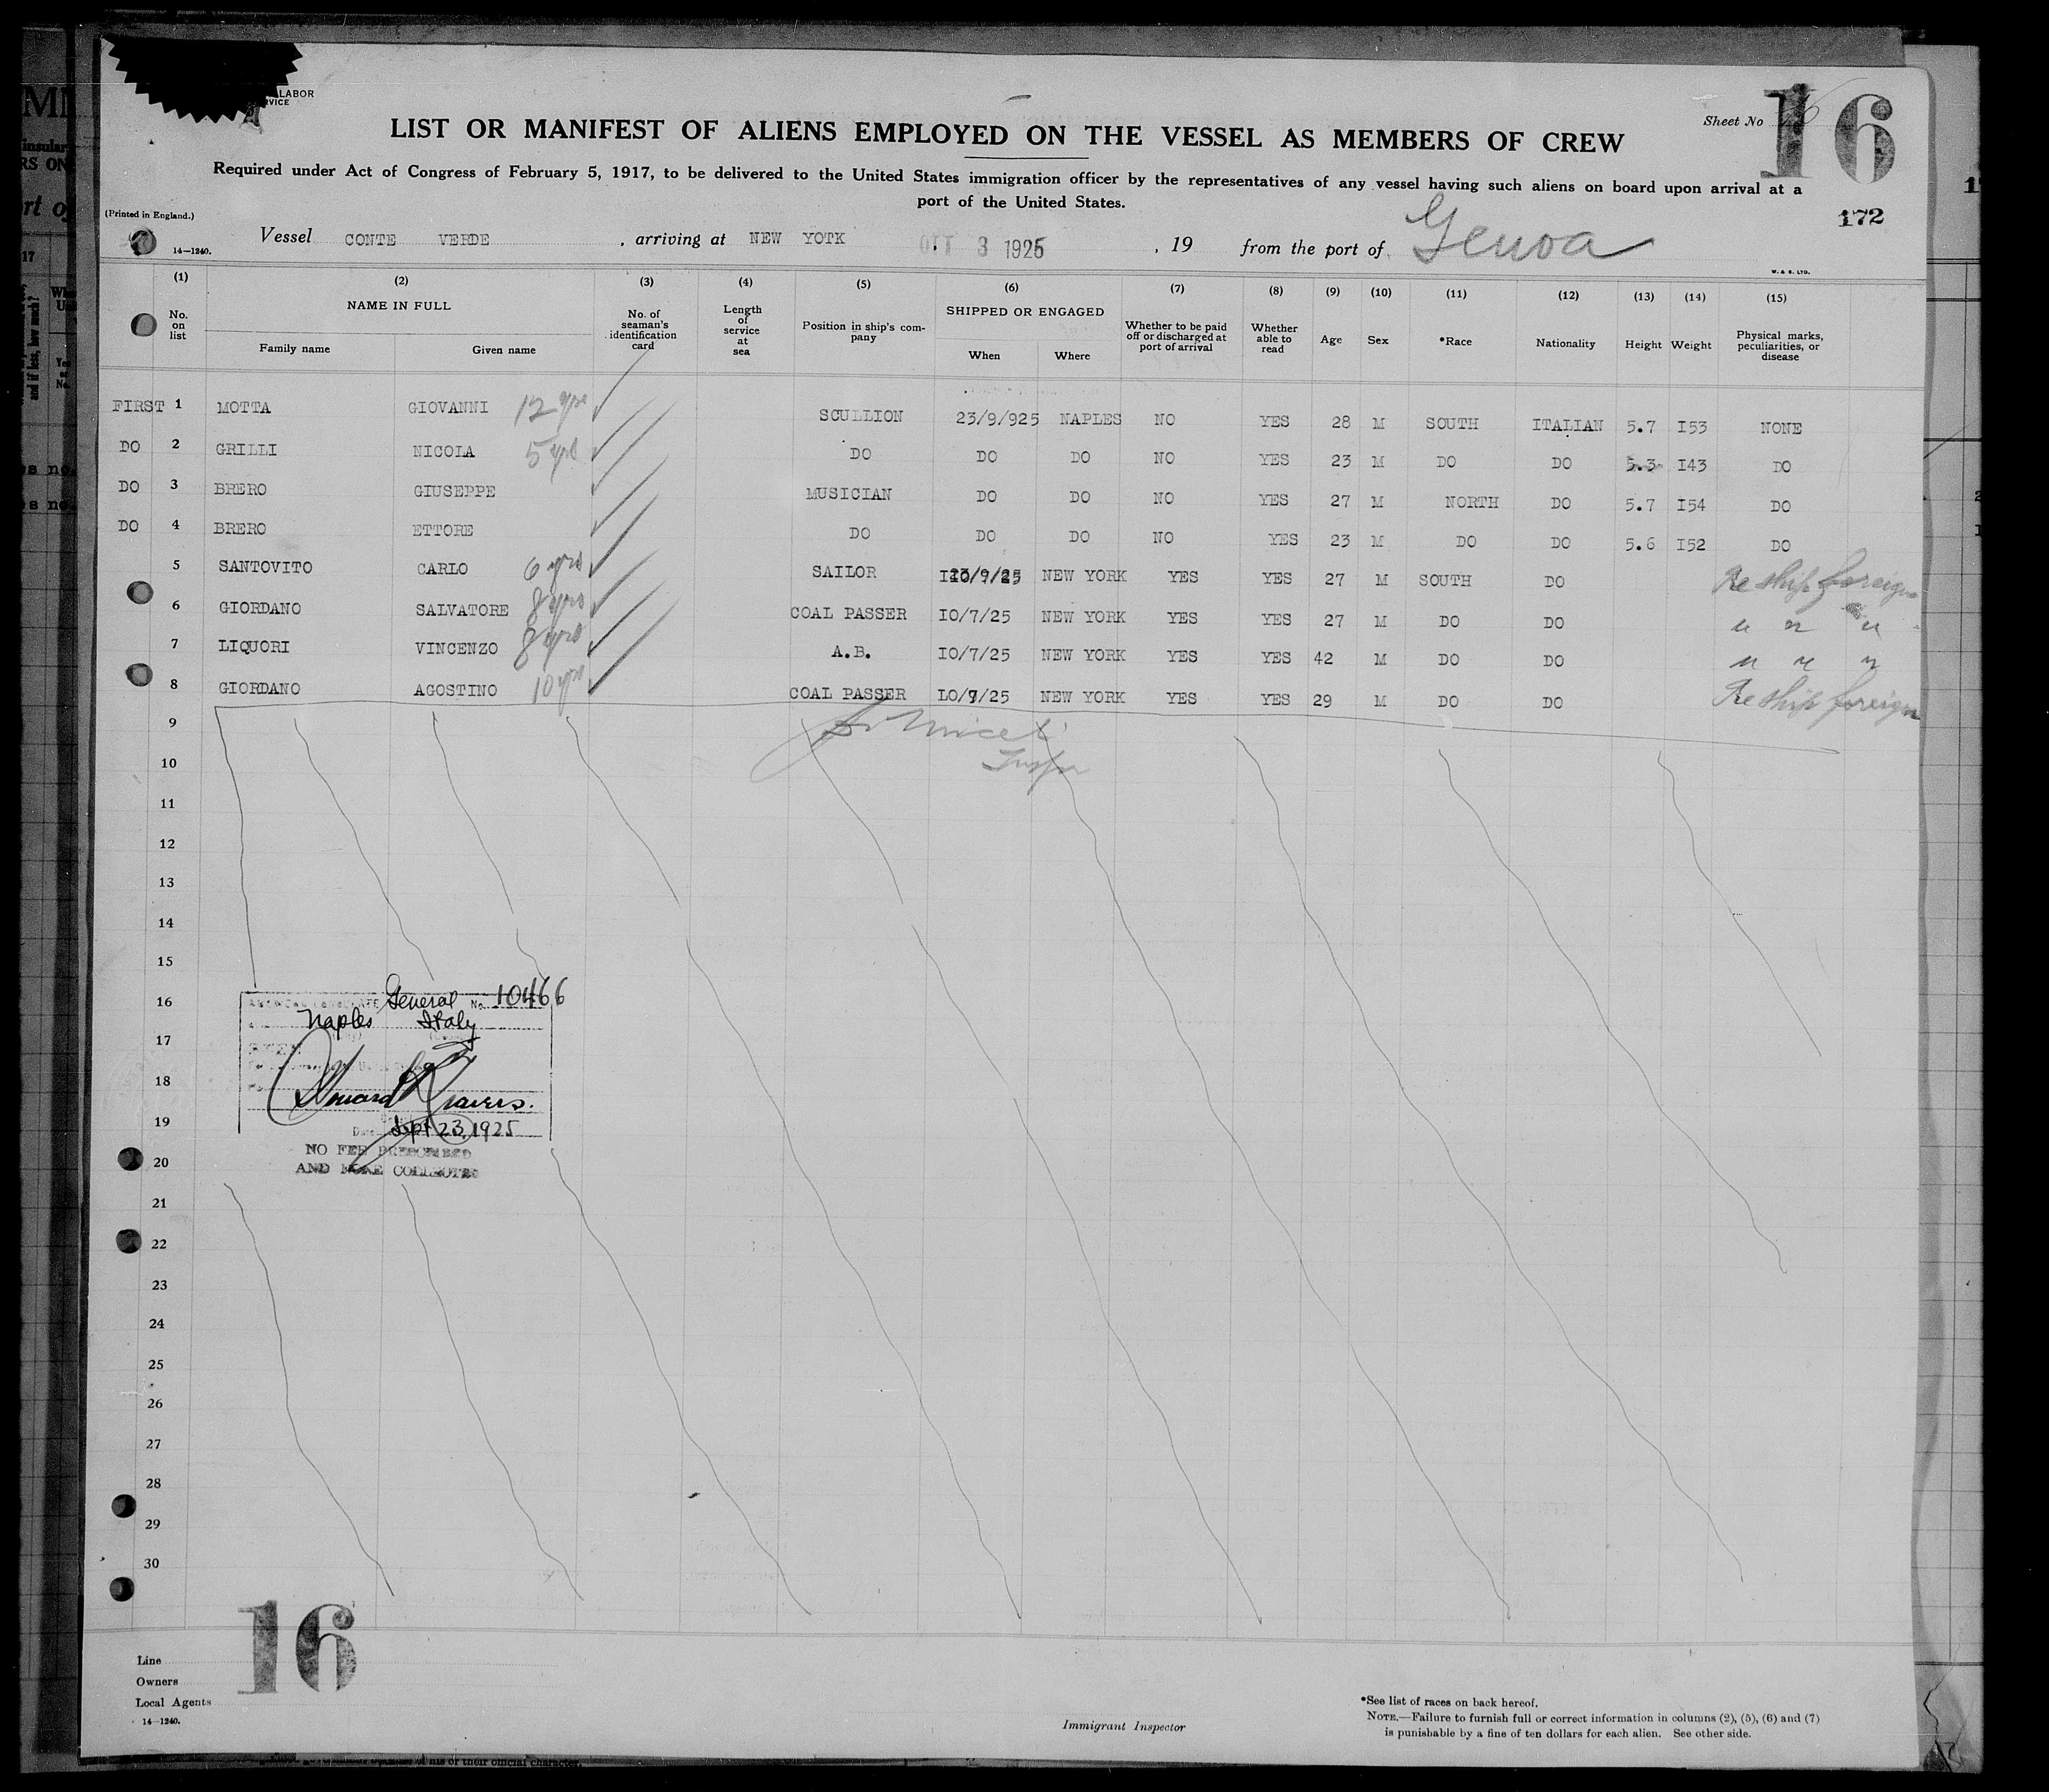 LABOR
RVICE
Sheet No 16
16
LIST OR MANIFEST OF ALIENS EMPLOYED ON THE VESSEL AS MEMBERS OF CREW
Required under Act of Congress of February 5, 1917, to be delivered to the United States immigration officer by the representatives of any vessel having such aliens on board upon arrival at a
port of the United States.
172
(Printed in England.)
14—1240.
Vessel CONTE VERDE , arriving at NEW YOTK OTT 3 1925 , 19 from the port of Genoa
W. & S. LTD.
(1) (2) (3) (4) (5) (6) (7) (8) (9) (10) (11) (12) (13) (14) (15)
No. on list NAME IN FULL Family name Given name No. of seaman's identification card Length of service at sea Position in ship's company SHIPPED OR ENGAGED When Where Whether to be paid off or discharged at port of arrival Whether able to read Age Sex *Race Nationality Height Weight Physical marks, peculiarities, or disease
FIRST 1 MOTTA GIOVANNI 12 yrs SCULLION 23/9/925 NAPLES NO YES 28 M SOUTH ITALIAN 5.7 I53 NONE
DO 2 GRILLI NICOLA 5 yrs DO DO DO NO YES 23 M DO DO 5.3 I43 DO
DO 3 BRERO GIUSEPPE MUSICIAN DO DO NO YES 27 M NORTH DO 5.7 I54 DO
DO 4 BRERO ETTORE DO DO DO NO YES 23 M DO DO 5.6 I52 DO
5 SANTOVITO CARLO 6 yrs SAILOR NEW YORK YES YES 27 M SOUTH DO Reship foreign
6 GIORDANO SALVATORE 8 yrs COAL PASSER IO/7/25 NEW YORK YES YES 27 M DO DO " " "
7 LIQUORI VINCENZO 8 yrs A.B. IO/7/25 NEW YORK YES YES 42 M DO DO " " "
8 GIORDANO AGOSTINO 10 yrs COAL PASSER NEW YORK YES YES 29 M DO DO Reship foreign
9
10
11
12
13
14
15
16
17
18
19
20
21
22
23
24
25
26
27
28
29
30
General No. 10466
Naples Italy
Date Sept 23, 1925
NO FEE PRESCRIBED
AND NONE COLLECTED
16
Line
Owners
Local Agents
14—1240.
Immigrant Inspector
*See list of races on back hereof.
NOTE.—Failure to furnish full or correct information in columns (2), (5), (6) and (7)
is punishable by a fine of ten dollars for each alien. See other side.